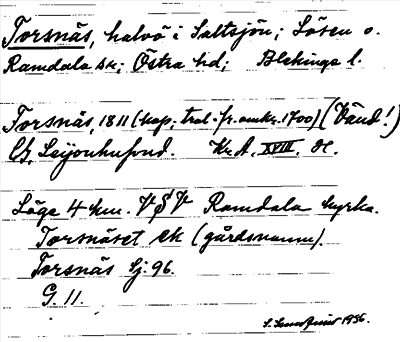 Torsnäs, halvö i Saltsjön; Lösen o.
Ramdala sk; Östra hd; Blekinge l.
Torsnäs, 1811 (kop; trol. fr. omkr. 1700) (Vänd!)
Leijonhufvud. Kr. A. XVIII.
Läge 4 km. VSV Ramdala kyrka.
Torsnäset ek (gårdsnamn).
Torsnäs Sj. 96.
G. 11.
1936.